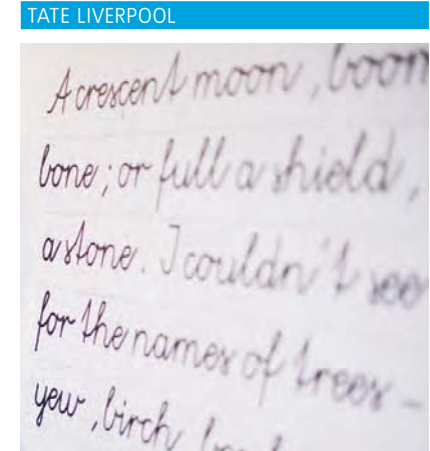 TATE LIVERPOOL
A crescent moon, boom
bone; or full a shield,
a stone. I couldn't see
for the names of trees –
yew, birch,